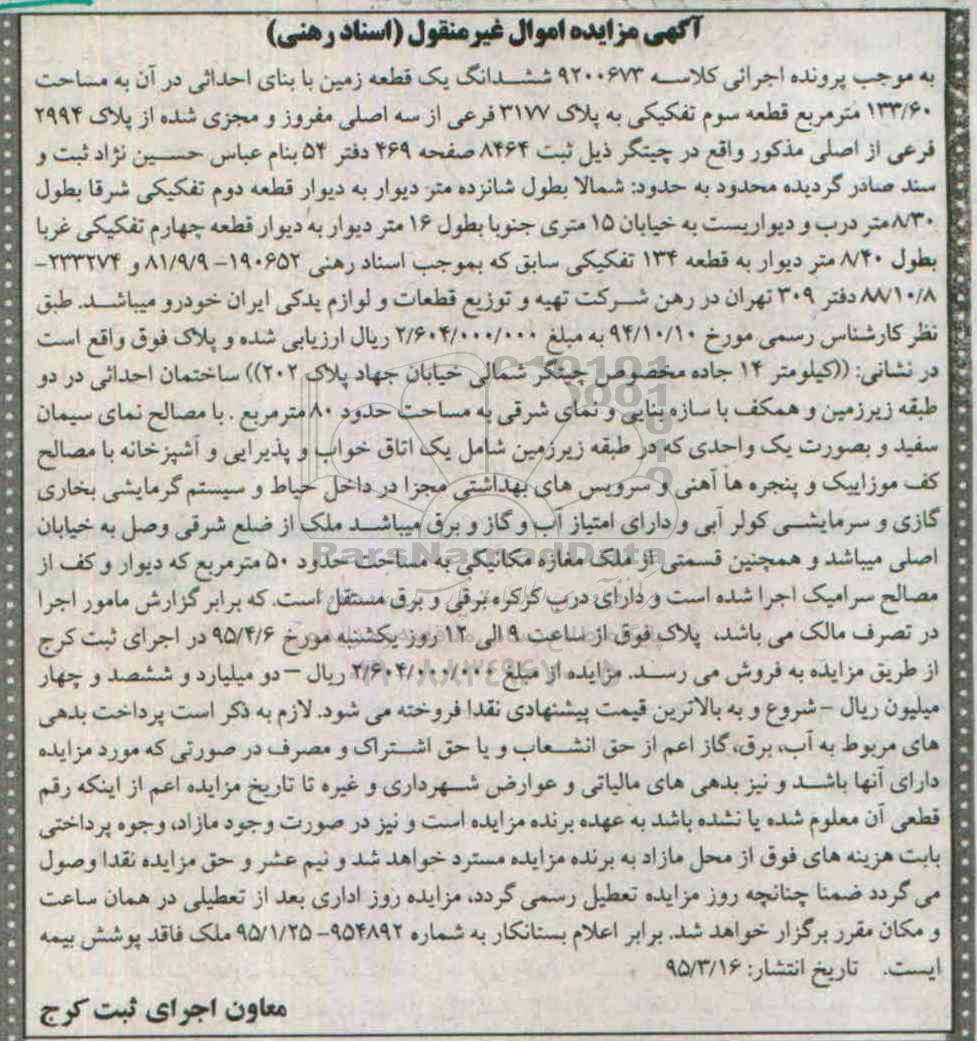 آگهی مزایده اموال غیرمنقول (اسناد رهنی)
به موجب پرونده اجرائی کلاسه ۹۲۰۰۶۷۳ ششدانگ یک قطعه زمین با بنای احداثی در آن به مساحت
۱۳۳/۶۰ مترمربع قطعه سوم تفکیکی به پلاک ۳۱۷۷ فرعی از سه اصلی مفروز و مجزی شده از پلاک ۲۹۹۴
فرعی از اصلی مذکور واقع در چیتگر ذیل ثبت ۸۴۶۴ صفحه ۴۶۹ دفتر ۵۴ بنام عباس حسین نژاد ثبت و
سند صادر گردیده محدود به حدود: شمالا بطول شانزده متر دیوار به دیوار قطعه دوم تفکیکی شرقا بطول
۸/۳۰متر درب و دیواریست به خیابان ۱۵ متری جنوبا بطول ۱۶ متر دیوار به دیوار قطعه چهارم تفکیکی غربا
بطول ۸/۴۰ متر دیوار به قطعه ۱۳۴ تفکیکی سابق که بموجب اسناد رهنی ۱۹۰۶۵۲- ۸۱/۹/۹ و ۲۳۳۲۷۴-
۸۸/۱۰/۸ دفتر ۳۰۹ تهران در رهن شرکت تهیه و توزیع قطعات و لوازم یدکی ایران خودرو میباشد. طبق
نظر کارشناس رسمی مورخ ۹۴/۱۰/۱۰ به مبلغ ۲/۶۰۴/۰۰۰/۰۰۰ ریال ارزیابی شده و پلاک فوق واقع است
در نشانی: ((کیلومتر ۱۴ جاده مخصوص چیتگر شمالی خیابان جهاد پلاک ۲۰۲)) ساختمان احداثی در دو
طبقه زیرزمین و همکف با سازه بنایی و نمای شرقی به مساحت حدود ۸۰ مترمربع . با مصالح نمای سیمان
سفید و بصورت یک واحدی که در طبقه زیرزمین شامل یک اتاق خواب و پذیرایی و آشپزخانه با مصالح
کف موزاییک و پنجره ها آهنی و سرویس های بهداشتی مجزا در داخل حیاط و سیستم گرمایشی بخاری
گازی و سرمایشی کولر آبی و دارای امتیاز آب و گاز و برق میباشد ملک از ضلع شرقی وصل به خیابان
اصلی میباشد و همچنین قسمتی از ملک مغازه مکانیکی به مساحت حدود ۵۰ مترمربع که دیوار و کف از
مصالح سرامیک اجرا شده است و دارای درب کرکره برقی و برق مستقل است. که برابر گزارش مامور اجرا
در تصرف مالک می باشد، پلاک فوق از ساعت ۹ الی ۱۲ روز یکشنبه مورخ ۹۵/۴/۶ در اجرای ثبت کرج
از طریق مزایده به فروش می رسد. مزایده از مبلغ ۲/۶۰۴/۰۰۰/۰۰۰ ریال – دو میلیارد و ششصد و چهار
میلیون ریال – شروع و به بالاترین قیمت پیشنهادی نقدا فروخته می شود. لازم به ذکر است پرداخت بدهی
های مربوط به آب، برق، گاز اعم از حق انشعاب و یا حق اشتراک و مصرف در صورتی که مورد مزایده
دارای آنها باشد و نیز بدهی های مالیاتی و عوارض شهرداری و غیره تا تاریخ مزایده اعم از اینکه رقم
قطعی آن معلوم شده یا نشده باشد به عهده برنده مزایده است و نیز در صورت وجود مازاد، وجوه پرداختی
بابت هزینه های فوق از محل مازاد به برنده مزایده مسترد خواهد شد و نیم عشر و حق مزایده نقدا وصول
می گردد ضمنا چنانچه روز مزایده تعطیل رسمی گردد، مزایده روز اداری بعد از تعطیلی در همان ساعت
و مکان مقرر برگزار خواهد شد. برابر اعلام بستانکار به شماره ۹۵۴۸۹۲- ۹۵/۱/۲۵ ملک فاقد پوشش بیمه
ایست. تاریخ انتشار: ۹۵/۳/۱۶
معاون اجرای ثبت کرج
ParsNamadData